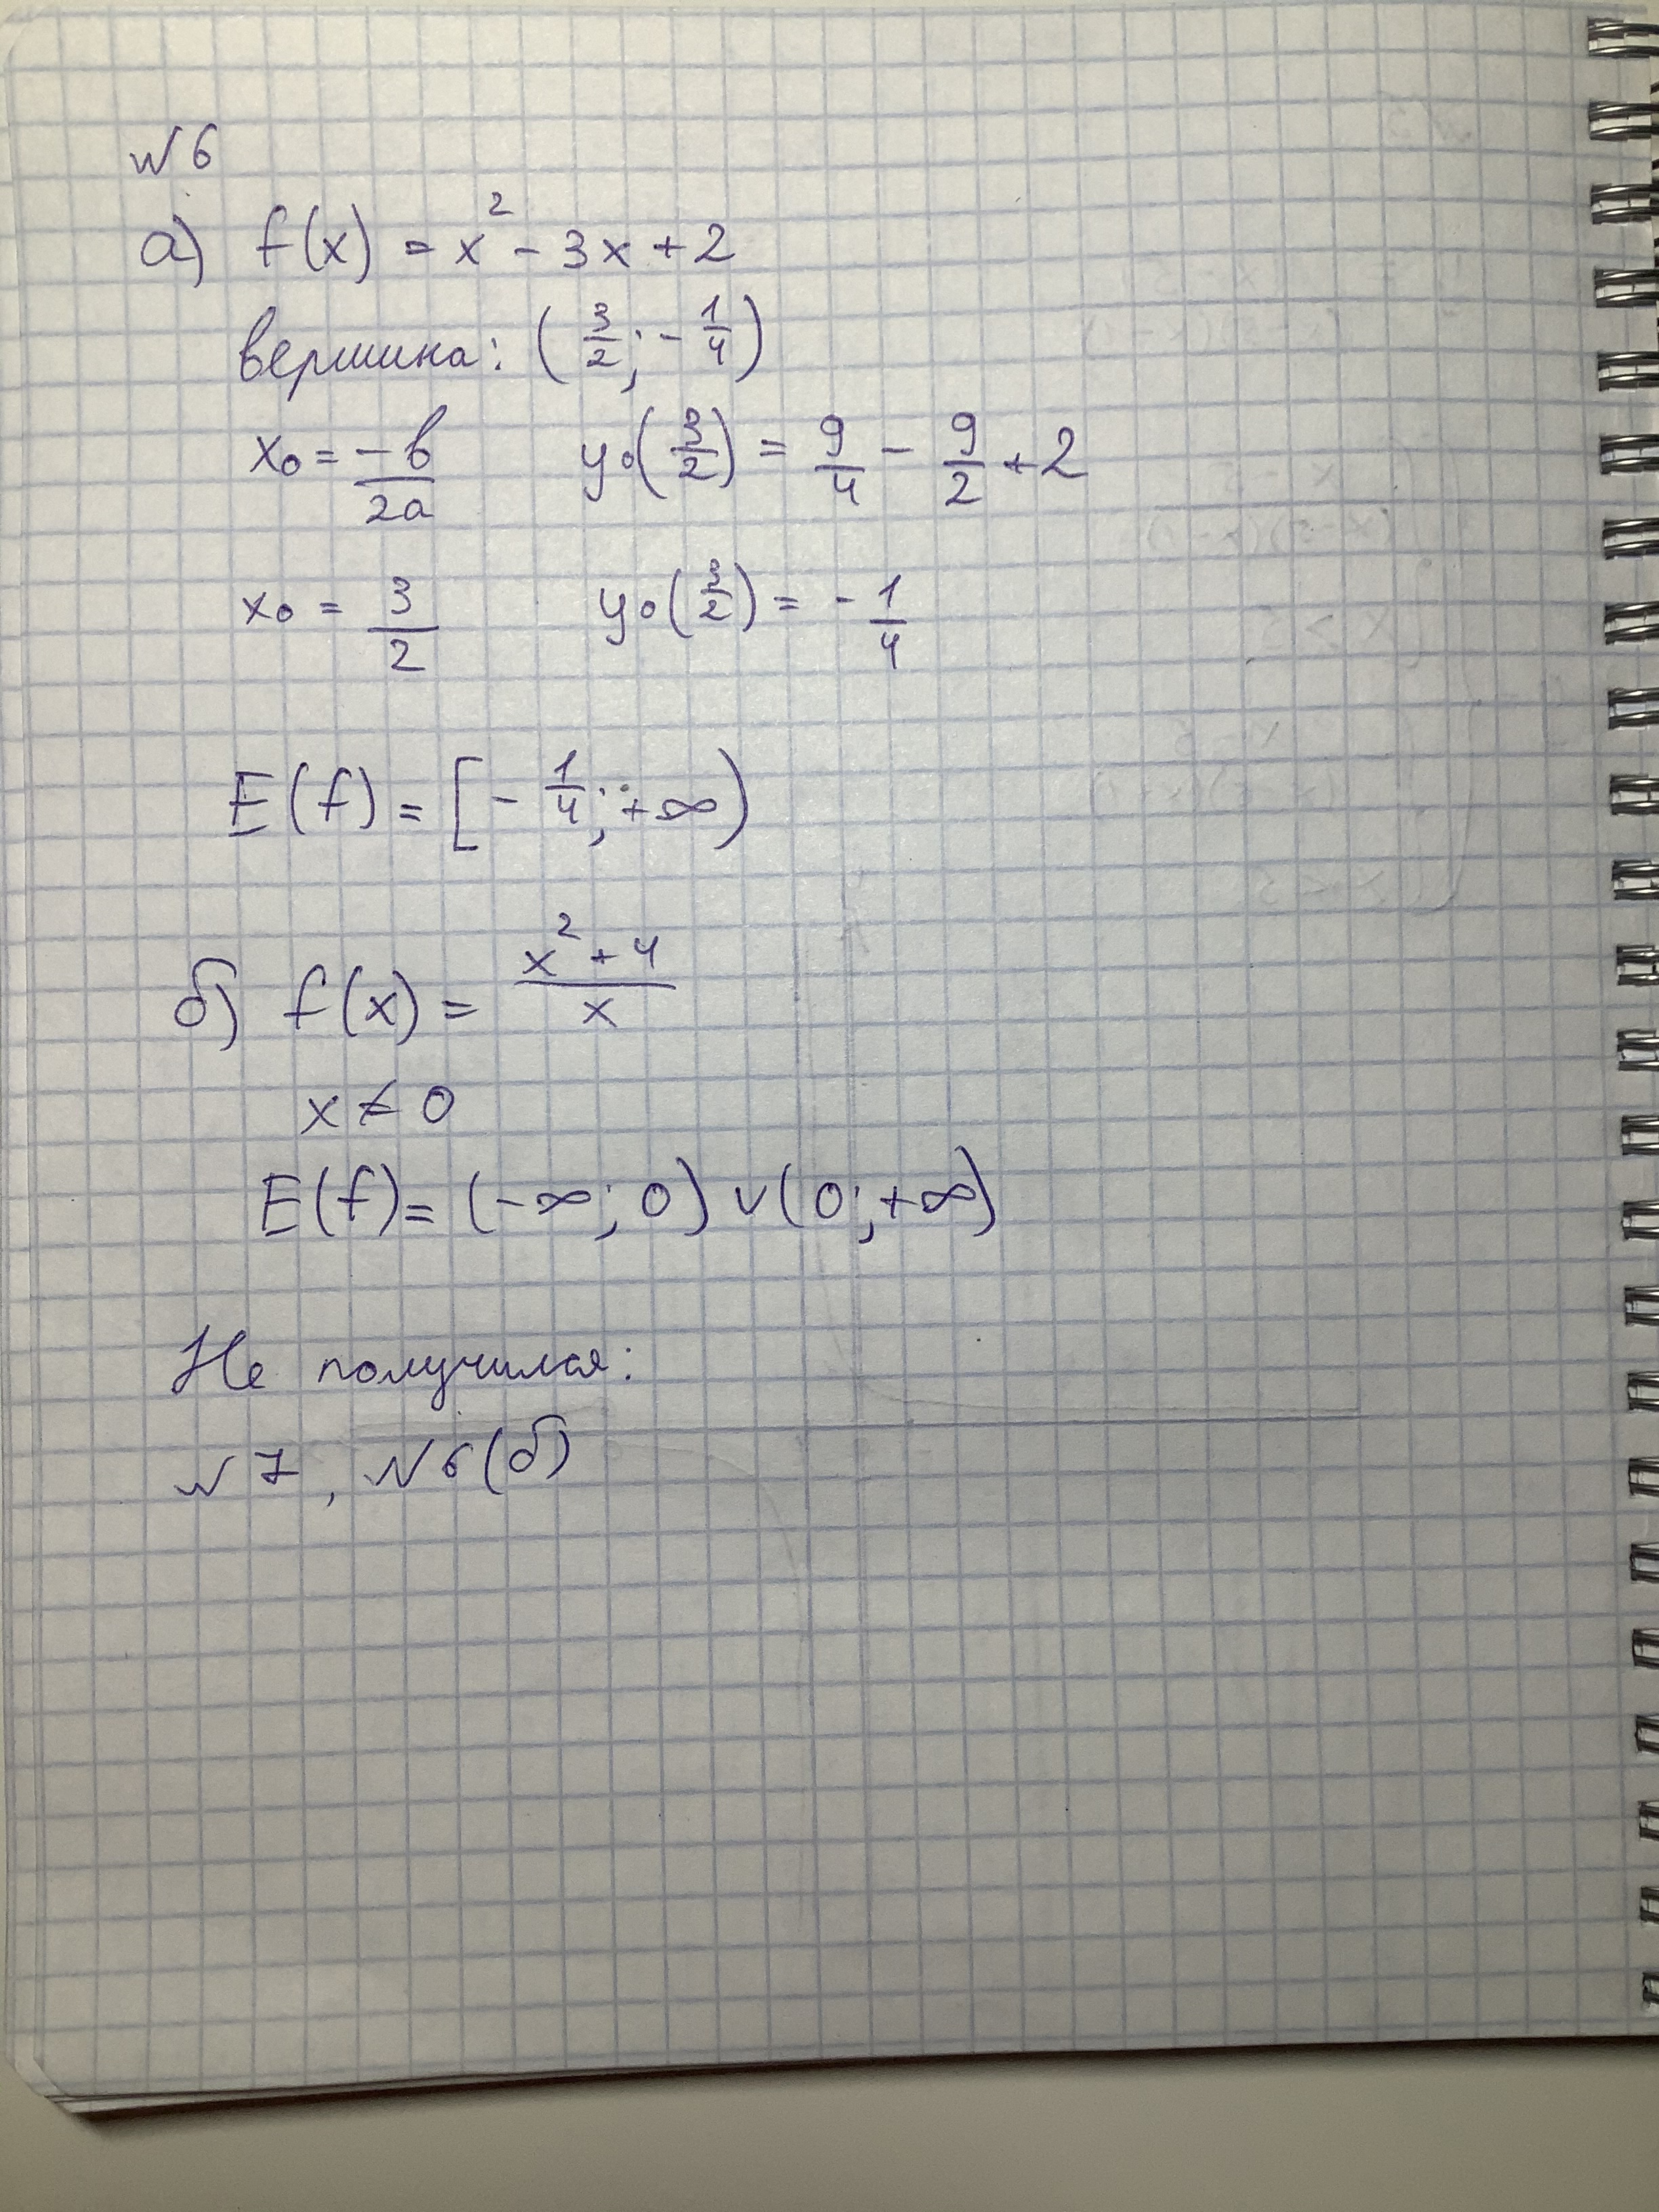 №6
а) f(x) = x² - 3x + 2
вершина: (3/2; -1/4)
x₀ = -b/2a   y₀(3/2) = 9/4 - 9/2 + 2
x₀ = 3/2   y₀(3/2) = -1/4
E(f) = [-1/4; +∞)
б) f(x) = x² + 4/x
x ≠ 0
E(f) = (-∞; 0) ∨ (0; +∞)
Не получился:
№7, №6(б)